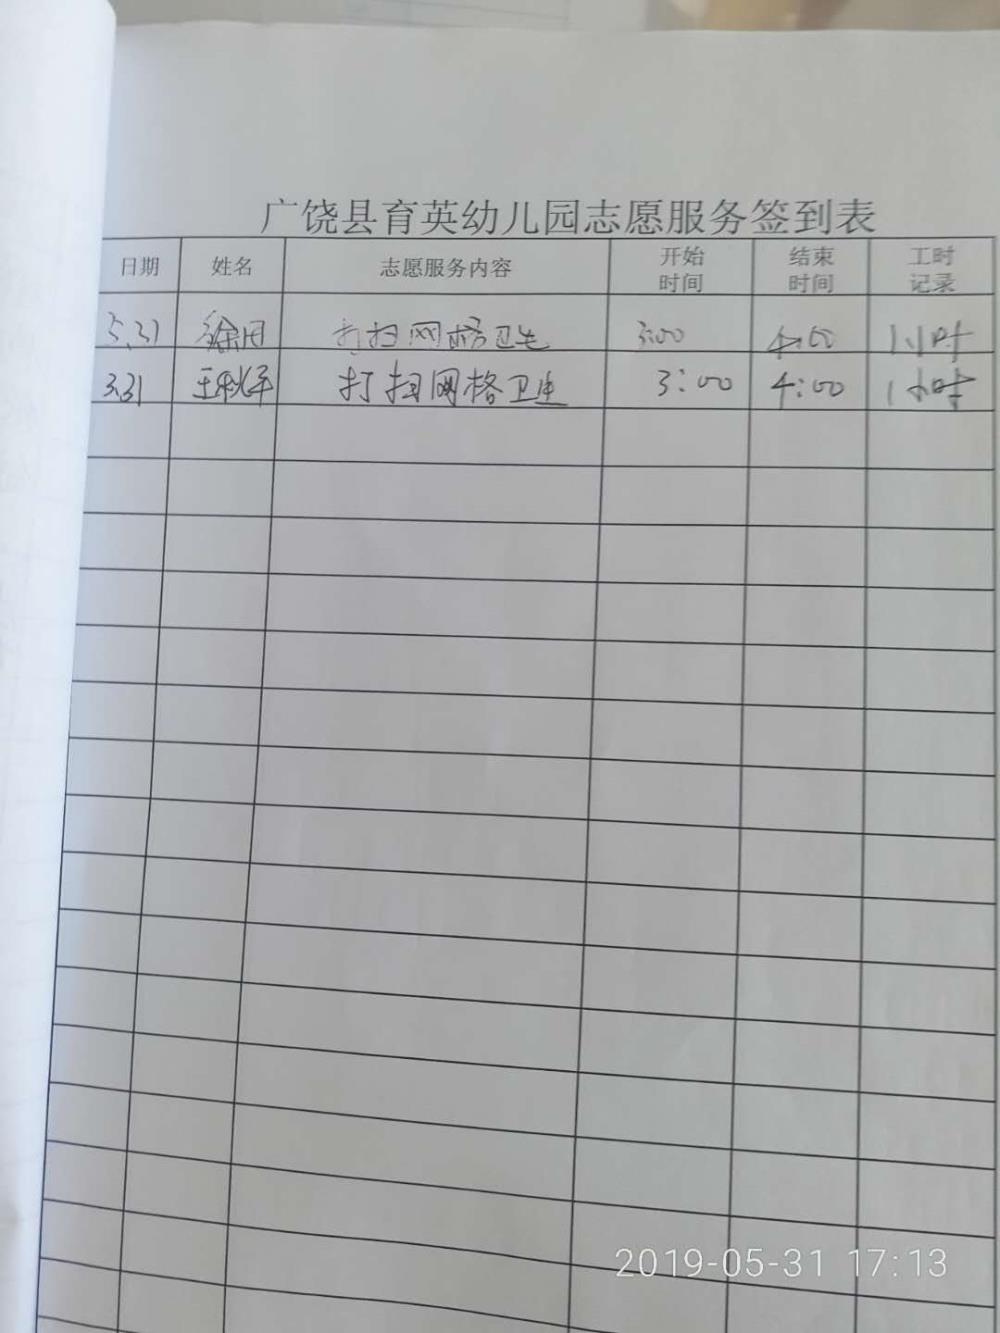 广饶县育英幼儿园志愿服务签到表
日期 姓名 志愿服务内容 开始时间 结束时间 工时记录
5.31 打扫网格卫生 3:00 4:00 1小时
3.31 打扫网格卫生 3:00 4:00 1小时
2019-05-31 17:13